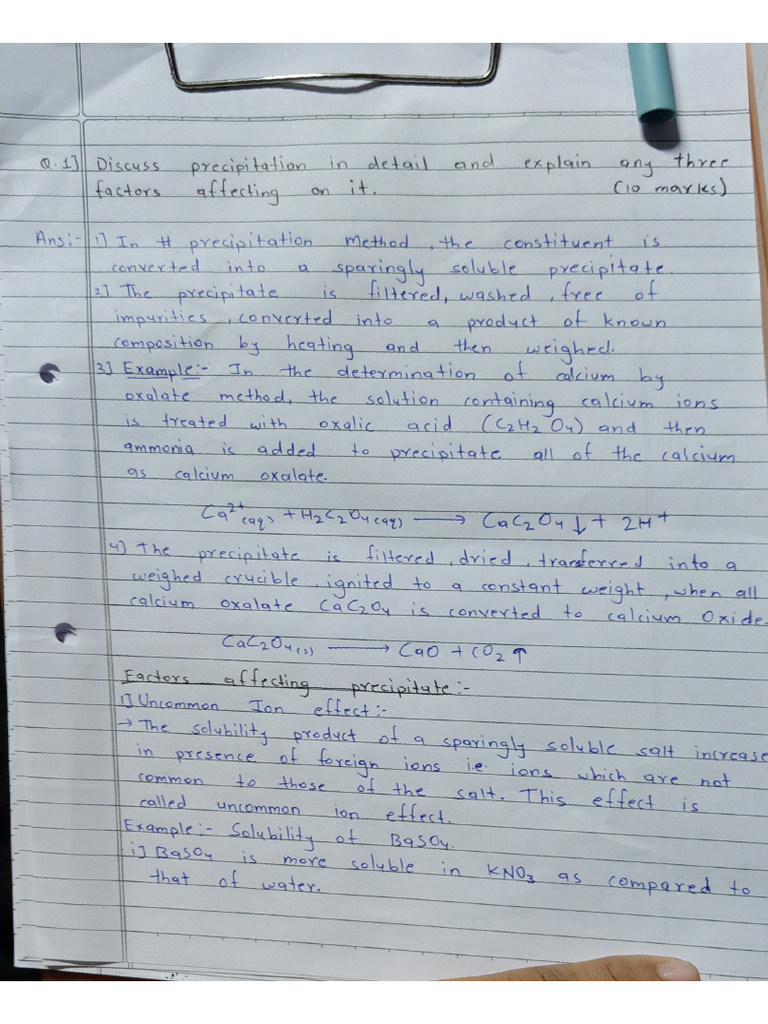 Q.1] Discuss precipitation in detail and explain any three
factors affecting on it. (10 marks)
Ans:- 1] In # precipitation method, the constituent is
converted into a sparingly soluble precipitate.
2] The precipitate is filtered, washed, free of
impurities, converted into a product of known
composition by heating and then weighed.
3] Example:- In the determination of calcium by
oxalate method, the solution containing calcium ions
is treated with oxalic acid (C2H2O4) and then
ammonia is added to precipitate all of the calcium
as calcium oxalate.
Ca2+(aq) + H2C2O4(aq) → CaC2O4↓ + 2H+
4) The precipitate is filtered, dried, transferred into a
weighed crucible, ignited to a constant weight, when all
calcium oxalate CaC2O4 is converted to calcium Oxide.
CaC2O4(s) → CaO + CO2↑
Factors affecting precipitate:-
1] Uncommon Ion effect:-
→ The solubility product of a sparingly soluble salt increase
in presence of foreign ions i.e. ions which are not
common to those of the salt. This effect is
called uncommon ion effect.
Example:- Solubility of BaSO4.
i] BaSO4 is more soluble in KNO3 as compared to
that of water.